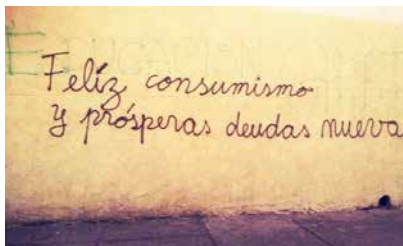 EDUCACIÓN
Felíz consumismo
y prósperas deudas nueva